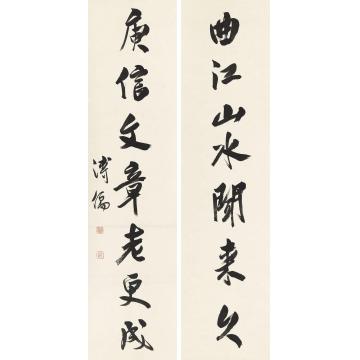 曲江山水聞來久
庾信文章老更成
溥儒